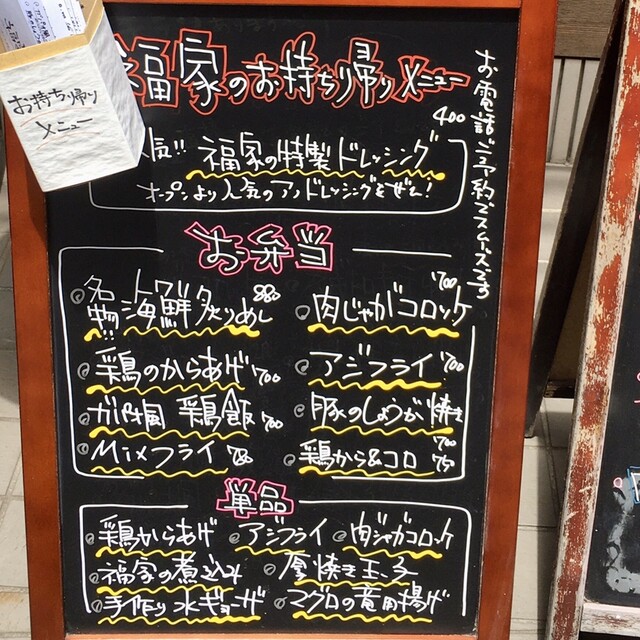 お持ち帰り
メニュー
福家のお持ち帰りメニュー
お電話ご予約でスムーズです
400
人気!! 福家の特製ドレッシング
オープンより人気のアンドレッシングをぜひ!
お弁当
名物!! 海鮮炙りめし 880
肉じゃがコロッケ 700
鶏のからあげ 700
アジフライ 700
鶏飯 700
豚のしょうが焼き 700
Mixフライ 780
鶏から&コロ 750
単品
鶏からあげ
アジフライ
肉じゃがコロッケ
福家の煮込み
厚焼き玉子
手作り水ギョーザ
マグロの竜田揚げ